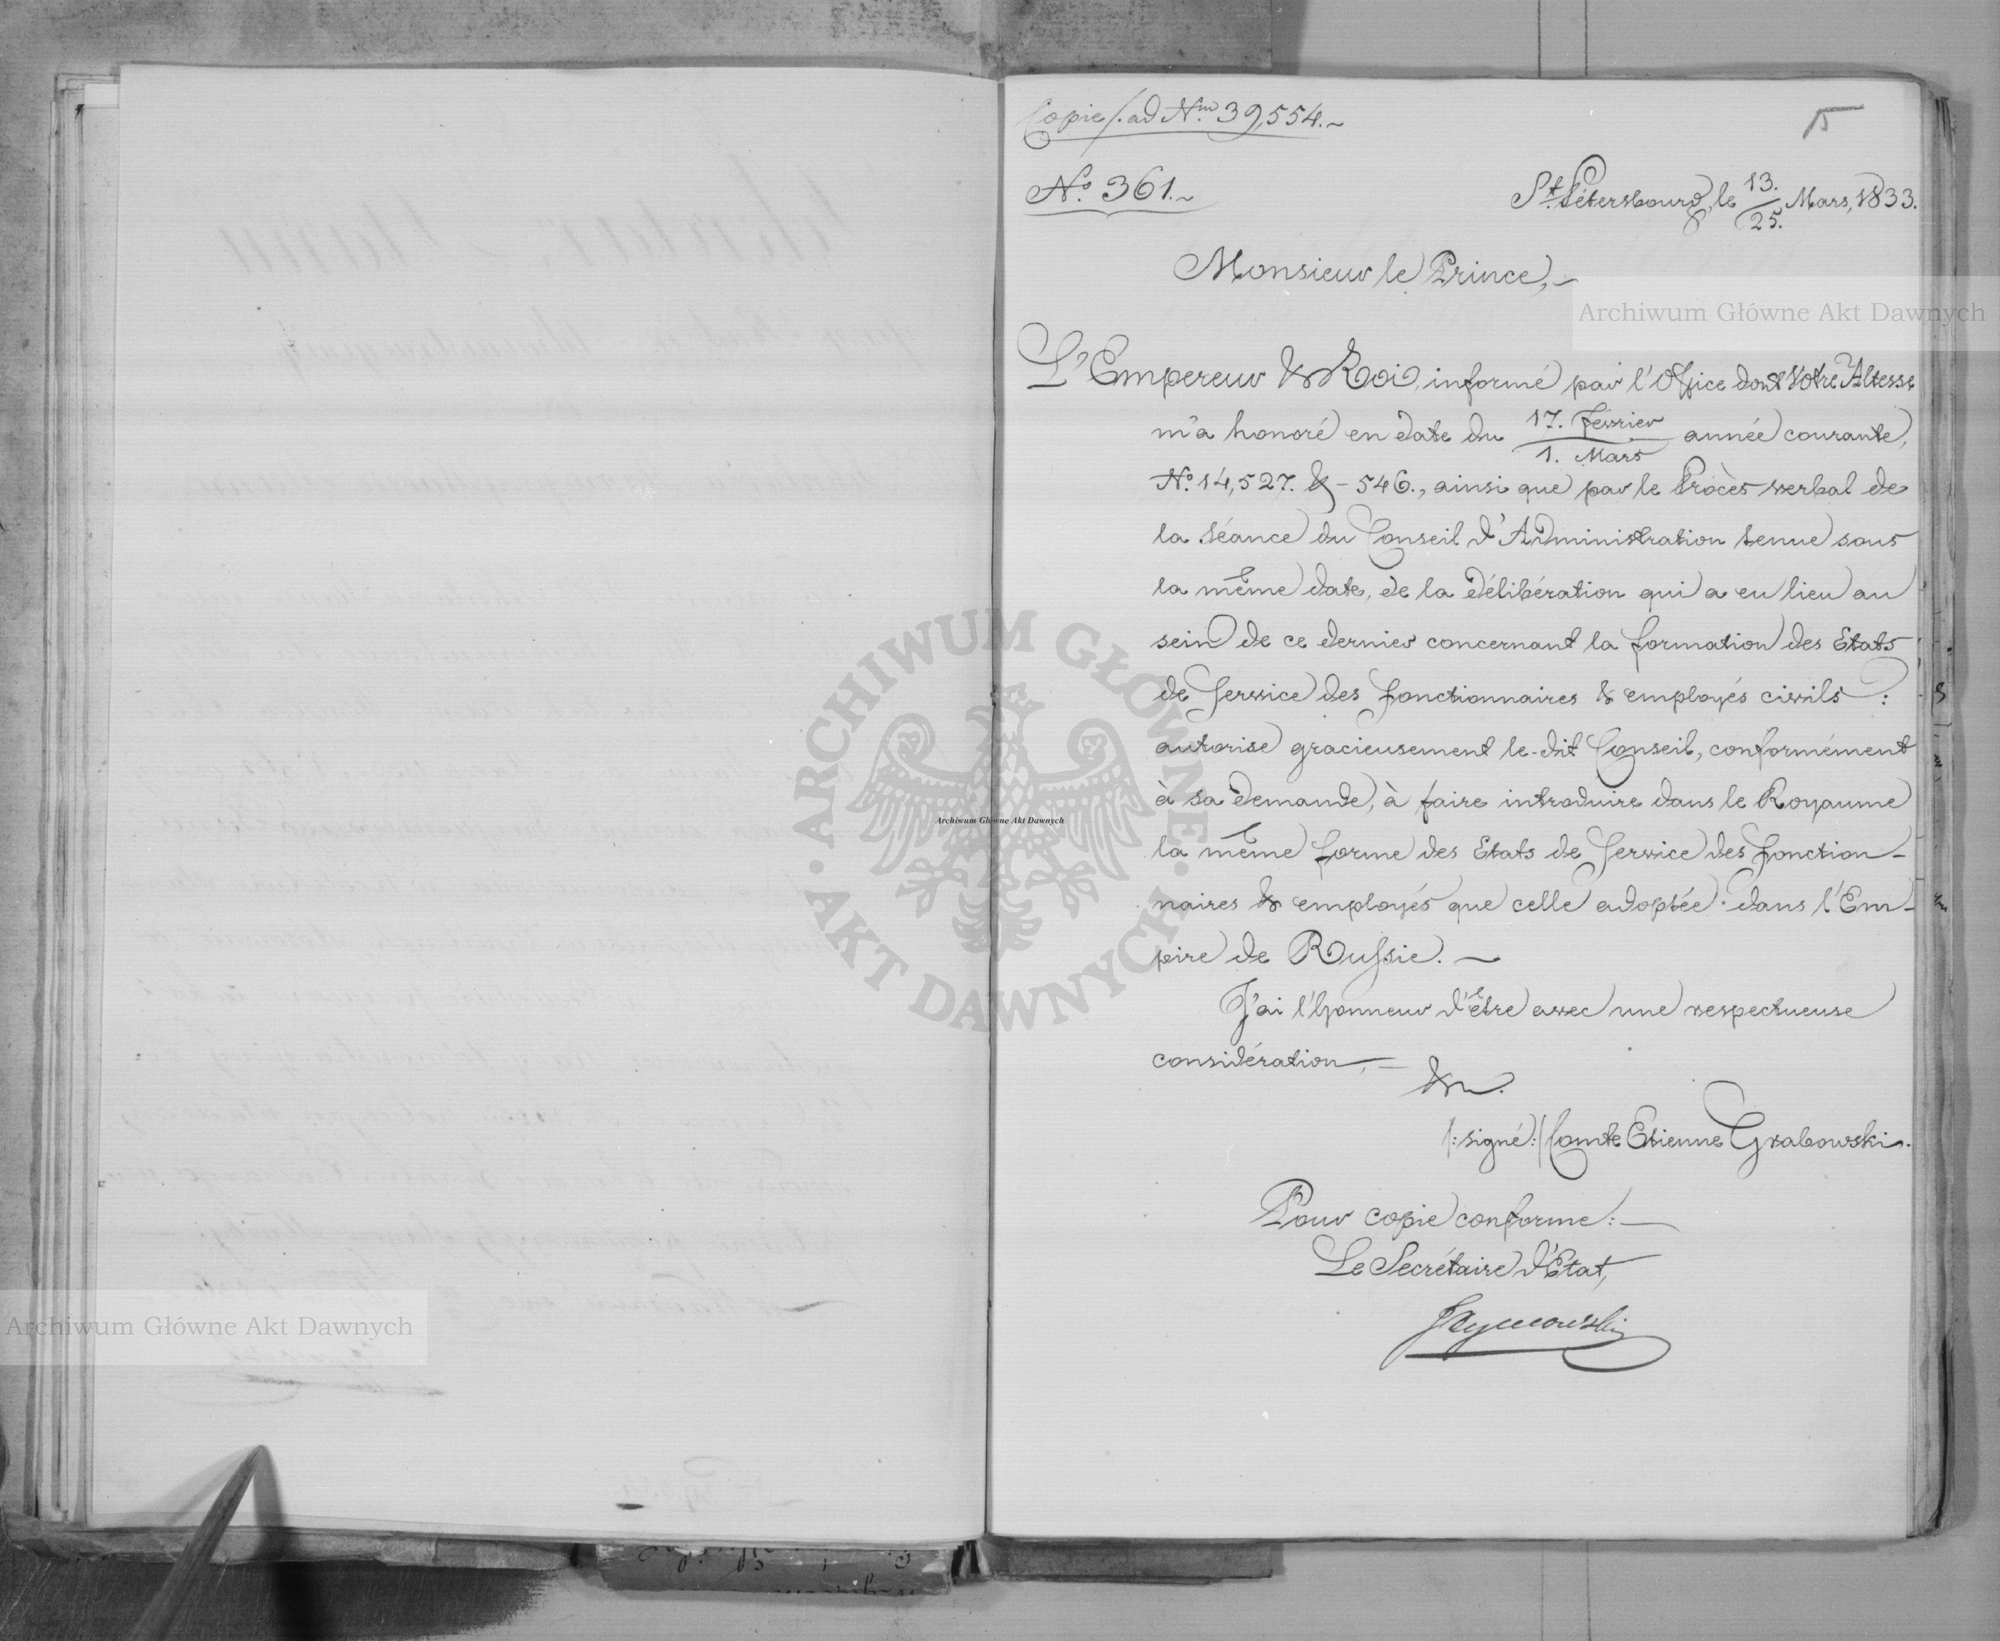 Copie/. ad Nrm 39,554.~
15
No. 361.~
St. Pétersbourg, le 13./25. Mars, 1833.
Monsieur le Prince,~
L'Empereur & Roi, informé par l'Office dont Votre Altesse
m'a honoré en date du 17. Février/1. Mars année courante,
No. 14,527. & - 546., ainsi que par le Procès verbal de
la séance du Conseil d'Administration tenue sous
la même date, de la délibération qui a eu lieu au
sein de ce dernier concernant la formation des Etats
de Service des fonctionnaires & employés civils :
autorise gracieusement le-dit Conseil, conformément
à sa demande, à faire introduire dans le Royaume
la même forme des Etats de Service des fonction-
naires & employés que celle adoptée dans l'Em-
pire de Russie. —
J'ai l'honneur d'être avec une respectueuse
considération, —
&
/: signé :/ Comte Etienne Grabowski.
Pour copie conforme : —
Le Secrétaire d'Etat,
Archiwum Główne Akt Dawnych
Archiwum Główne Akt Dawnych
Archiwum Główne Akt Dawnych
ARCHIWUM GŁÓWNE · AKT DAWNYCH ·